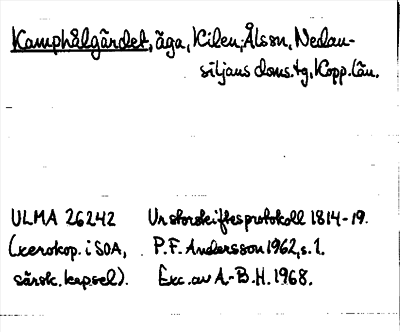 Kamphålgärdet, äga, Kilen, Ålsön, Nedan-
siljans doms.tg, Kopp. län.
ULMA 26242 Ur storskiftesprotokoll 1814-19.
(xerokop. i SOA, P.F. Andersson 1962, s. 1.
särsk. kapsel). Exc. av A.-B.H. 1968.